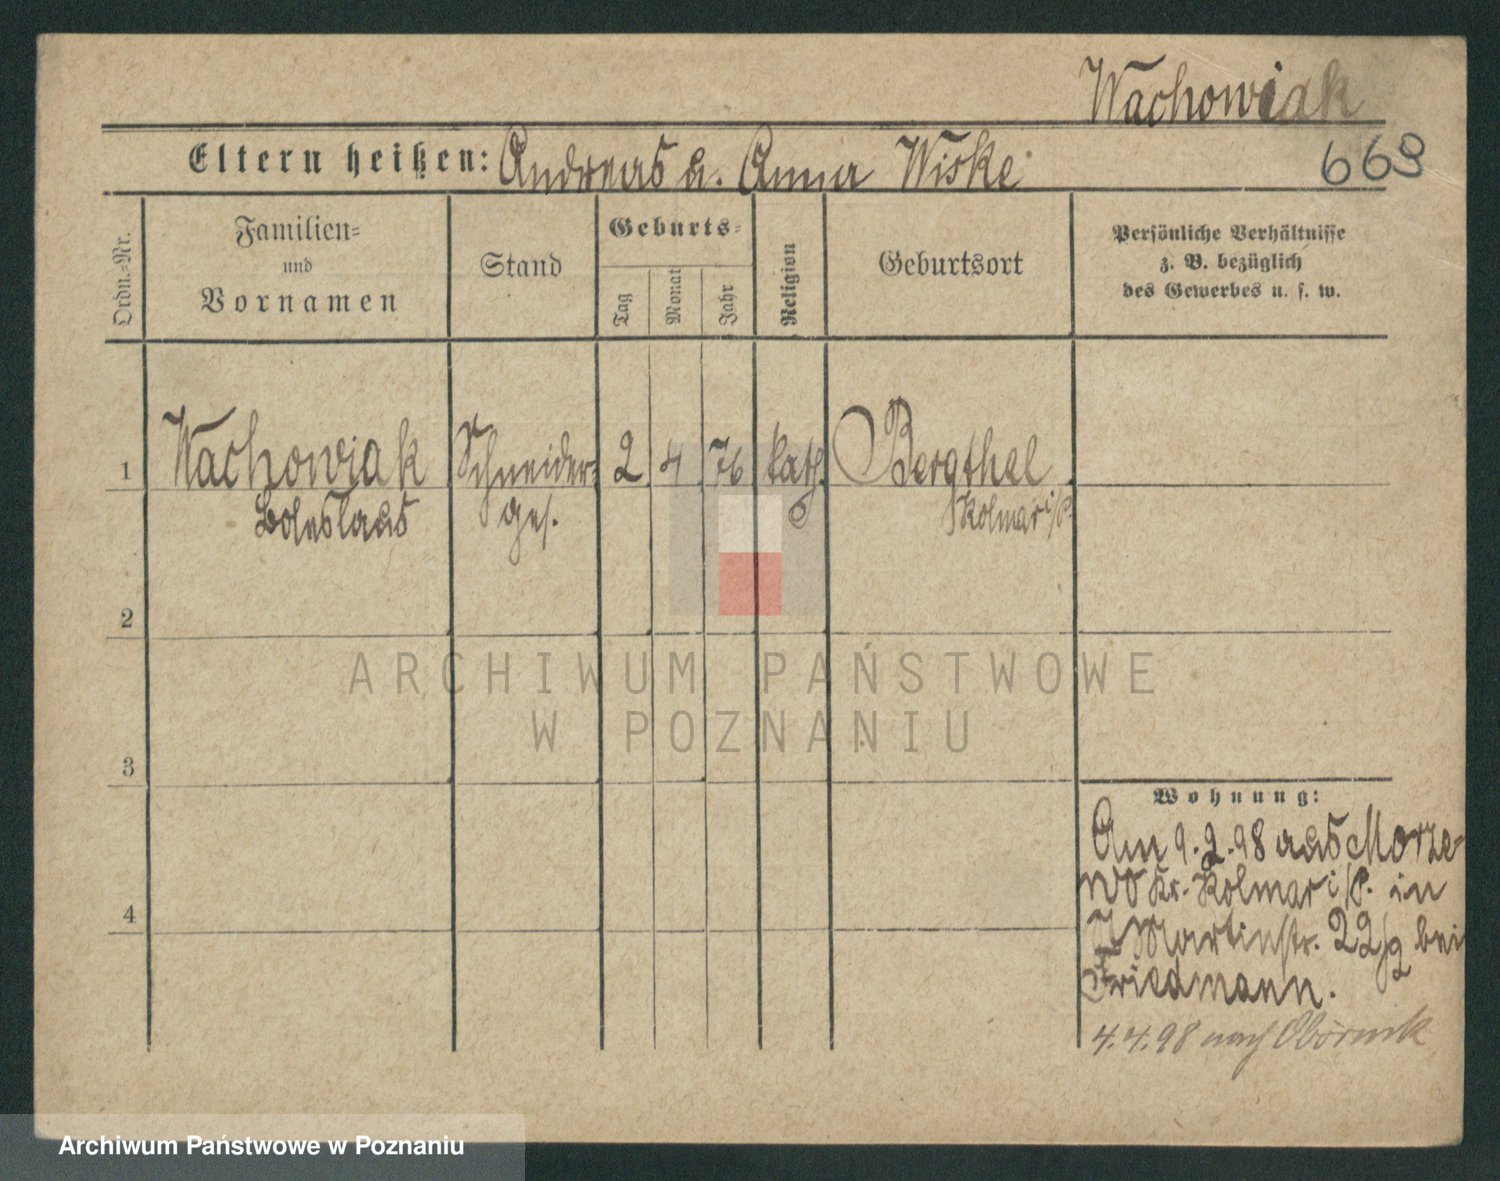 Wachowiak
Eltern heißen: Andreas u. Anna Wiske
669
Ordn.-Nr.
Familien-
und
Vornamen
Stand
Geburts-
Tag
Monat
Jahr
Religion
Geburtsort
Persönliche Verhältnisse
z. B. bezüglich
des Gewerbes u. s. w.
1 Wachowiak Schneider- 2 4 76 kath. Bergthal
Boleslaus ges. Kolmar i/P.
2
ARCHIWUM PAŃSTWOWE
W POZNANIU
3
Wohnung:
Am 9.2.98 aus Morze-
wo Kr. Kolmar i/P. in
Martinstr. 22/2 bei
Friedmann.
4
4.4.98 nach Obornik
Archiwum Państwowe w Poznaniu